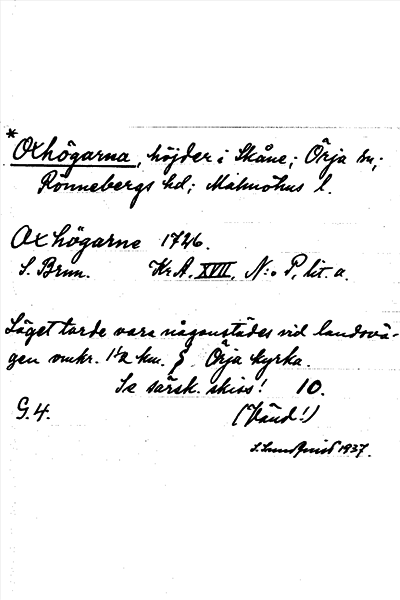 * Oxhögarna, höjder i Skåne; Örja sn;
Rönnebergs hd; Malmöhus l.
Oxhögarne 1726.
S. Brun. Kr. A. XVII, N:o P, lit. a.
Läget torde vara någonstädes vid landsvä-
gen omkr. 1½ km. Örja kyrka.
Se särsk. skiss! 10.
G. 4. (Vänd!)
S. Lundquist 1937.